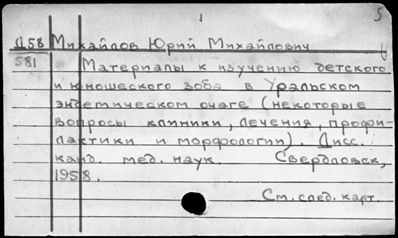 1 5
Д58 Михайлов Юрий Михайлович
581 Материалы к изучению детского
и юношеского зоба в Уральском
эндемическом очаге (некоторые
вопросы клиники, лечения, профи-
лактики и морфологии). Дисс.
канд. мед. наук. Свердловск,
1958.
См. след. карт.